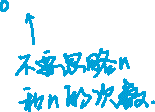 不要忽略n
和n的次数.